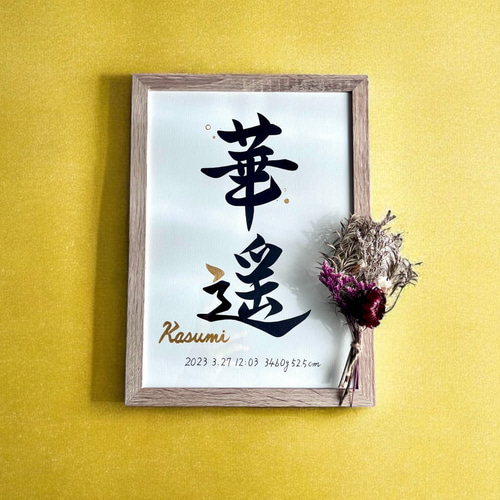 華
遥
Kasumi
2023 3.27 12:03 3460g 52.5cm